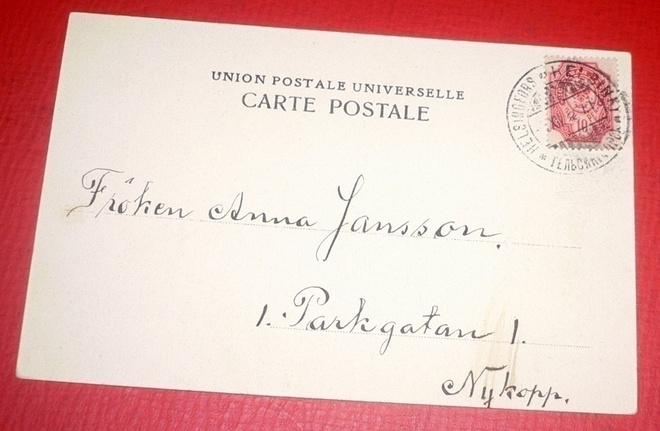 UNION POSTALE UNIVERSELLE
CARTE POSTALE
HELSINGFORS
HELSINKI
Fröken Anna Jansson.
1. Parkgatan 1.
Nykopp.